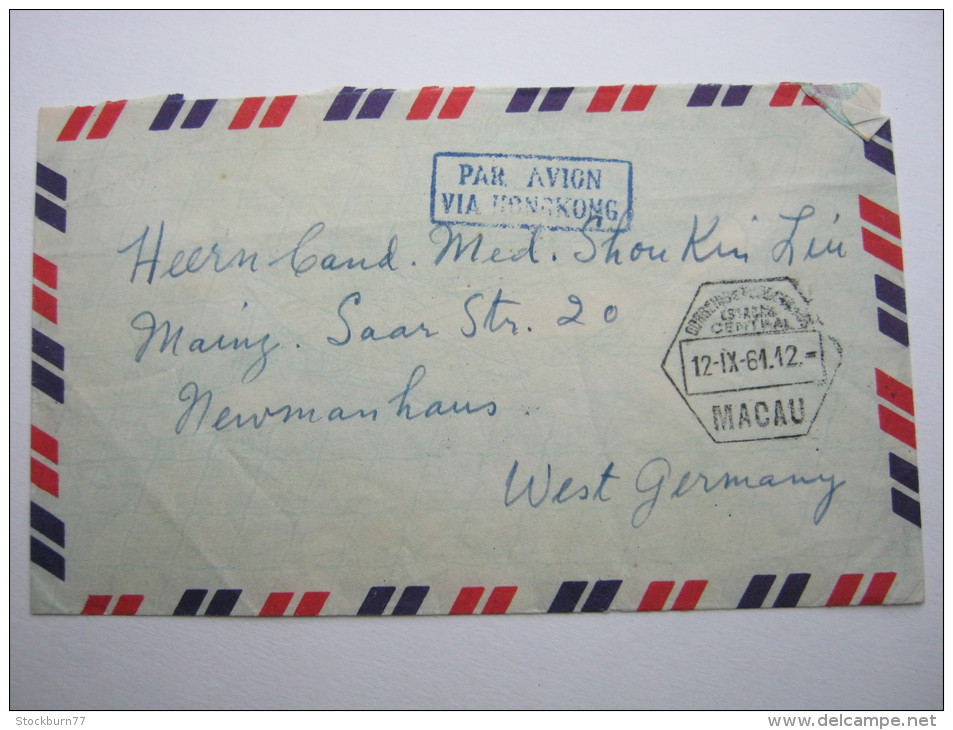 PAR AVION
VIA HONGKONG
Heern Cand. Med. Shou Kin Liu
Mainz. Saar Str. 20
Newmanhaus.
West Germany
CENTRAL
12-IX-61.12.=
MACAU
Stockburn77
www.delcampe.net